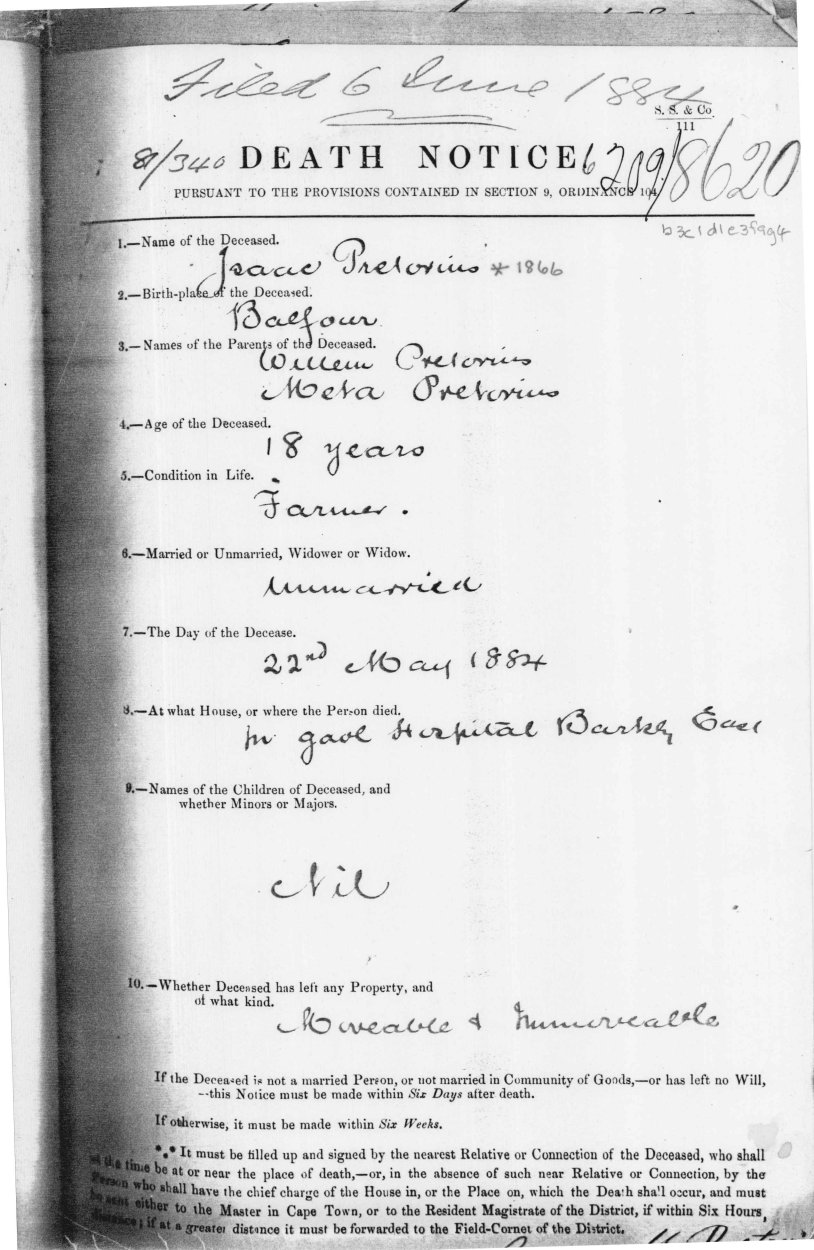 Filed 6 June 1884
S. S. & Co
111
81/340 DEATH NOTICE 6209/8620
PURSUANT TO THE PROVISIONS CONTAINED IN SECTION 9, ORDINANCE 104.
b3c1d1e3f9g4
1.—Name of the Deceased.
Isaac Pretorius * 1866
2.—Birth-place of the Deceased.
Balfour
3.—Names of the Parents of the Deceased.
Willem Pretorius
Meta Pretorius
4.—Age of the Deceased.
18 years
5.—Condition in Life.
Farmer.
6.—Married or Unmarried, Widower or Widow.
Unmarried
7.—The Day of the Decease.
22nd May 1884
8.—At what House, or where the Person died.
In gaol Hospital Barkly East
9.—Names of the Children of Deceased, and
whether Minors or Majors.
Nil
10.—Whether Deceased has left any Property, and
of what kind.
Moveable & Immoveable
If the Deceased is not a married Person, or not married in Community of Goods,—or has left no Will,
--this Notice must be made within Six Days after death.
If otherwise, it must be made within Six Weeks.
*** It must be filled up and signed by the nearest Relative or Connection of the Deceased, who shall
at the time be at or near the place of death,—or, in the absence of such near Relative or Connection, by the
Person who shall have the chief charge of the House in, or the Place on, which the Death shall occur, and must
be sent either to the Master in Cape Town, or to the Resident Magistrate of the District, if within Six Hours
distance; if at a greater distance it must be forwarded to the Field-Cornet of the District.